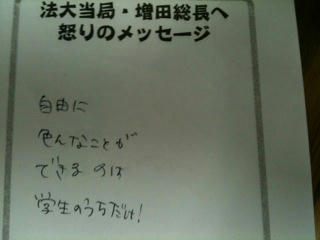 法大当局・増田総長へ
怒りのメッセージ
自由に
色んなことが
できるのは
学生のうちだけ!